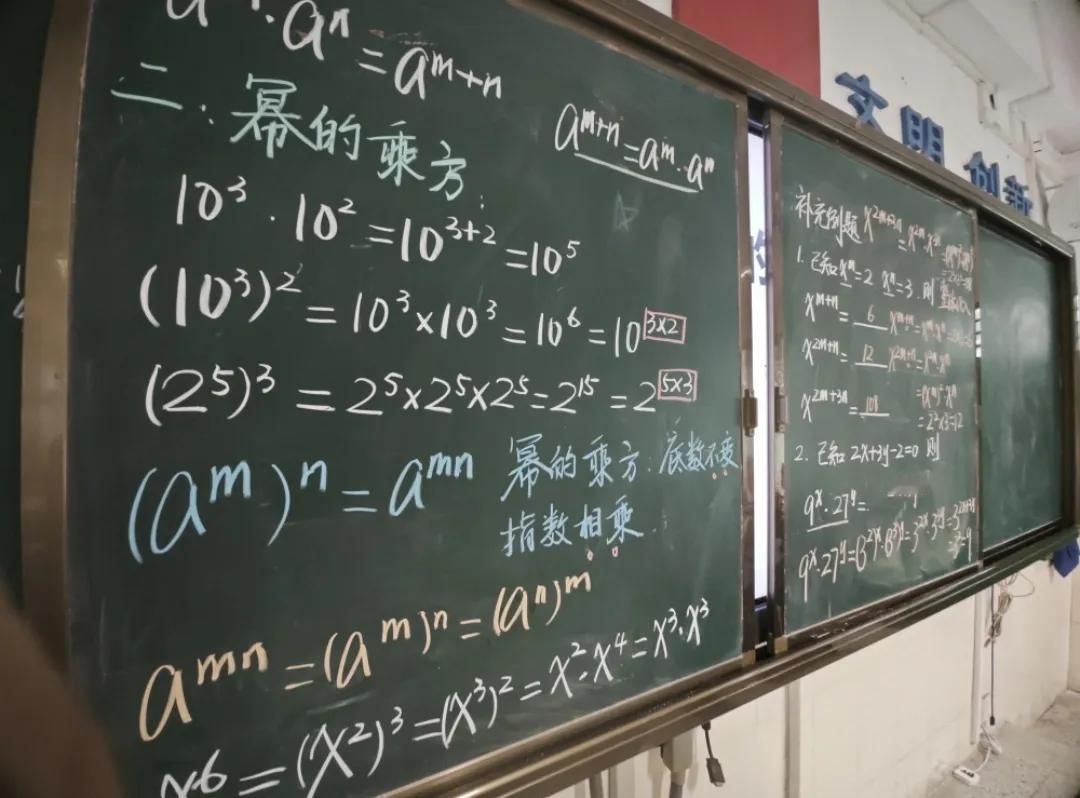 · aⁿ = aᵐ⁺ⁿ
二: 幂的乘方:
aᵐ⁺ⁿ = aᵐ · aⁿ
10³ · 10² = 10³⁺² = 10⁵
(10³)² = 10³ × 10³ = 10⁶ = 10³ˣ²
(2⁵)³ = 2⁵ × 2⁵ × 2⁵ = 2¹⁵ = 2⁵ˣ³
(aᵐ)ⁿ = aᵐⁿ 幂的乘方: 底数不变
指数相乘.
aᵐⁿ = (aᵐ)ⁿ = (aⁿ)ᵐ
x⁶ = (x²)³ = (x³)² = x² · x⁴ = x³ · x³
文明 创新
补充例题 x²ᵐ⁺³ⁿ = x²ᵐ · x³ⁿ
1. 已知 xᵐ = 2 xⁿ = 3. 则
xᵐ⁺ⁿ = 6 xᵐ⁺ⁿ = xᵐ · xⁿ
x²ᵐ⁺ⁿ = 12 x²ᵐ⁺ⁿ = x²ᵐ · xⁿ
= (xᵐ)² · xⁿ
x²ᵐ⁺³ⁿ = 108
= 2² × 3 = 12
2. 已知 2x+3y-2=0 则
9ˣ · 27ʸ =
9ˣ · 27ʸ = (3²)ˣ · (3³)ʸ = 3²ˣ · 3³ʸ = 3²ˣ⁺³ʸ
= 3² = 9